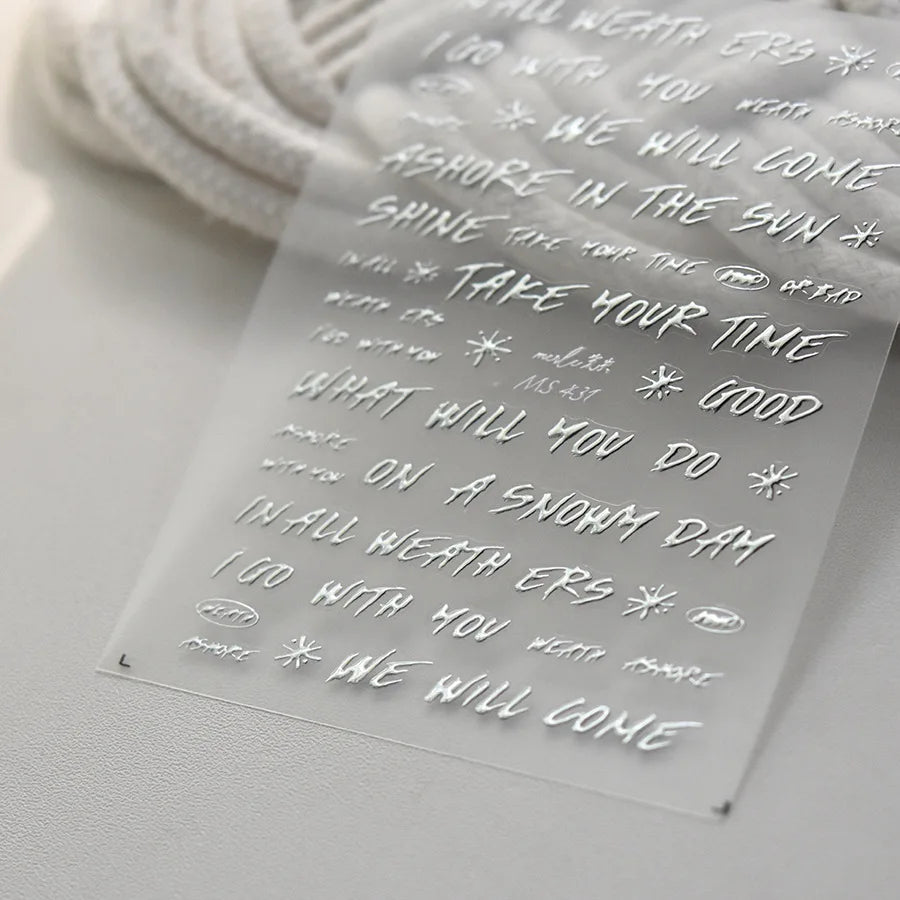 IN ALL WEATH ERS
I GO WITH YOU WEATH ASHORE
WE WILL COME
ASHORE IN THE SUN
SHINE TAKE YOUR TIME OR BAD
IN ALL TAKE YOUR TIME
WEATH ERS
I GO WITH YOU MS 431 GOOD
WHAT WILL YOU DO
ASHORE
WITH YOU ON A SNOWY DAY
IN ALL WEATH ERS
I GO WITH YOU WEATH ASHORE
WEATH
ASHORE WE WILL COME